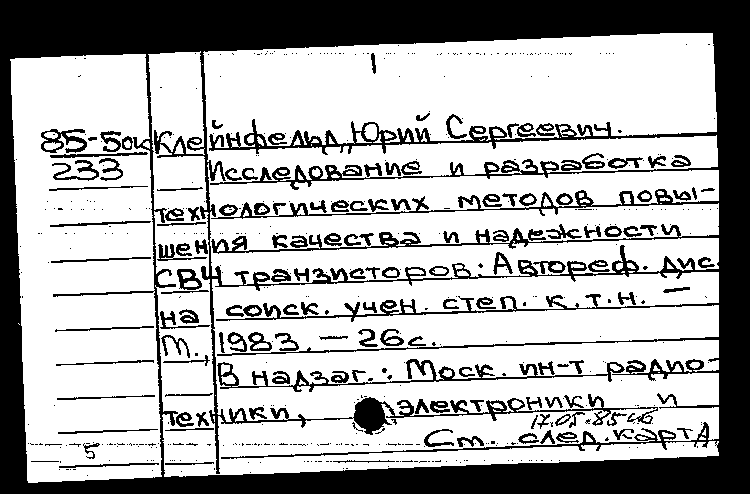 85-5 Клейнфельд, Юрий Сергеевич.
233 Исследование и разработка
технологических методов повы-
шения качества и надежности
СВЧ транзисторов: Автореф. дис.
на соиск. учен. степ. к.т.н. —
М., 1983. — 26 с.
В надзаг.: Моск. ин-т радио-
техники, электроники и
17.05.85
См. след. карт.
5